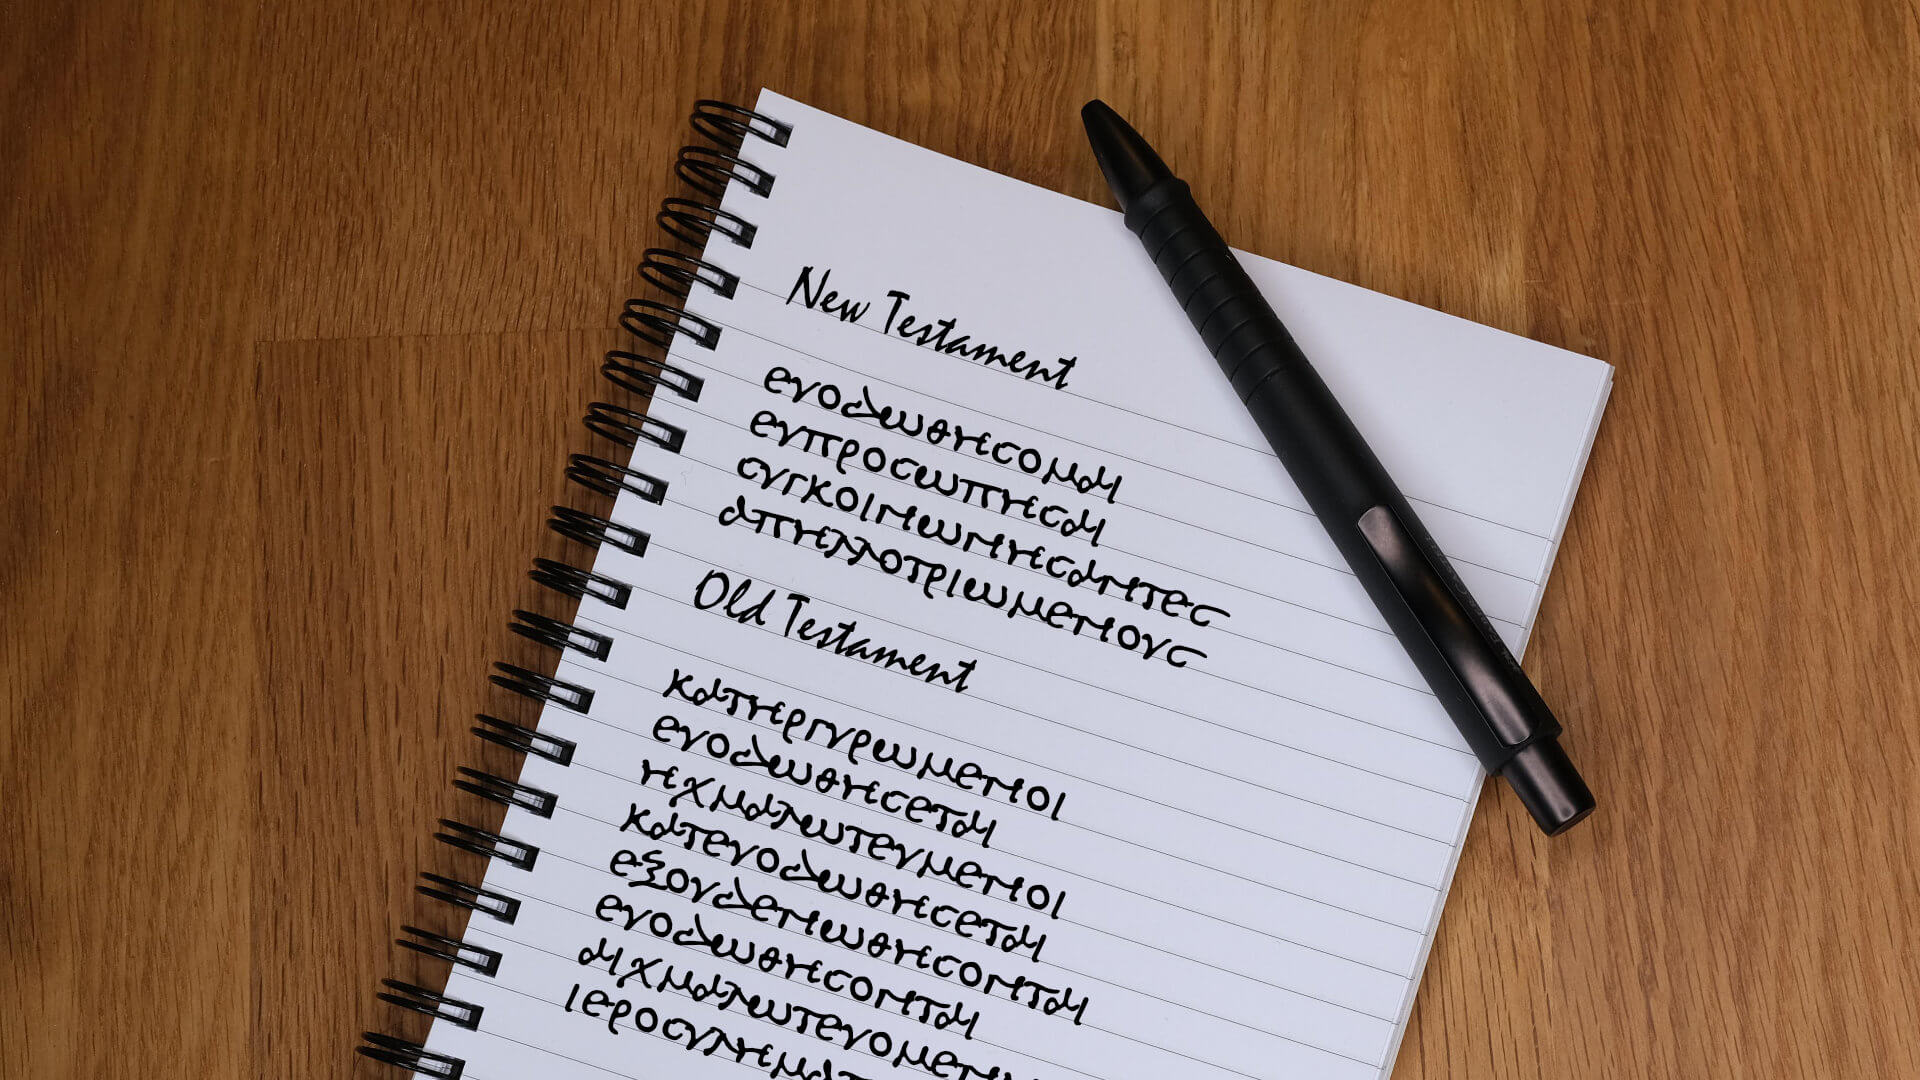 New Testament
ευοδωθησομαι
ευπροσωπησαι
συγκοινωνησαντες
απηλλοτριωμενους
Old Testament
κατηργυρωμενοι
ευοδωθησεται
ηχμαλωτευμενοι
κατευοδωθησεται
εξουδενωθησονται
ευοδωθησονται
αιχμαλωτευομεν
ιεροσυλημα